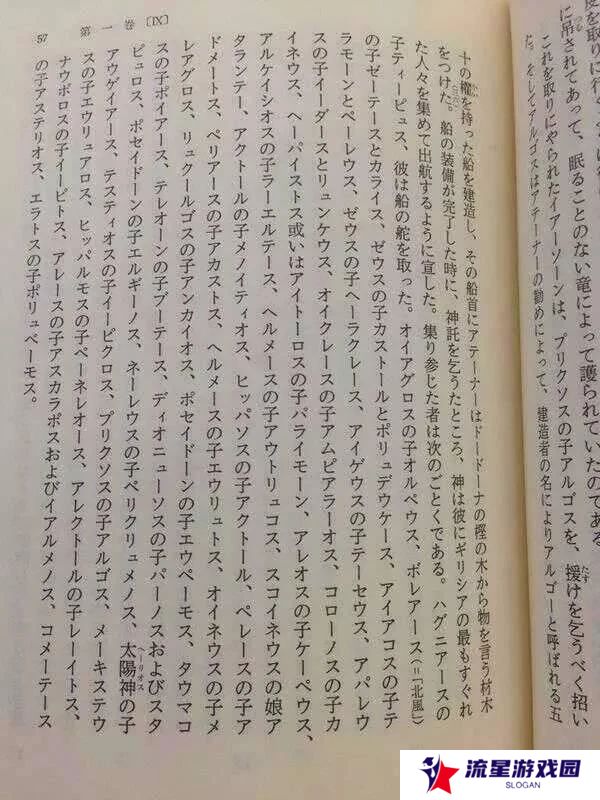 皮を取りに行
に吊されてあって、眠ることのない竜によって護られていたのである
これを取りにやられたイアーソーンは、プリクソスの子アルゴスを、援けを乞うべく招い
た。そしてアルゴスはアテーナーの勧めによって、建造者の名によりアルゴーと呼ばれる五
57 第一巻〔IX〕
十の櫂を持った船を建造し、その船首にアテーナーはドードーナの樫の木から物を言う材木
をつけた。船の装備が完了した時に、神託を乞うたところ、神は彼にギリシアの最もすぐれ
た人々を集めて出航するように宣した。集り参じた者は次のごとくである。ハグニアースの
子ティーピュス、彼は船の舵を取った。オイアグロスの子オルペウス、ボレアース(=「北風」)
の子ゼーテースとカライス、ゼウスの子カストールとポリュデウケース、アイアコスの子テ
ラモーンとペーレウス、ゼウスの子ヘーラクレース、アイゲウスの子テーセウス、アパレウ
スの子イーダースとリュンケウス、オイクレースの子アムピアラーオス、コローノスの子カ
イネウス、ヘーパイストス或いはアイトーロスの子パライモーン、アレオスの子ケーペウス、
アルケイシオスの子ラーエルテース、ヘルメースの子アウトリュコス、スコイネウスの娘ア
タランテー、アクトールの子メノイティオス、ヒッパソスの子アクトール、ペレースの子ア
ドメートス、ペリアースの子アカストス、ヘルメースの子エウリュトス、オイネウスの子メ
レアグロス、リュクールゴスの子アンカイオス、ポセイドーンの子エウペーモス、タウマコ
スの子ポイアース、テレオーンの子ブーテース、ディオニューソスの子パーノスおよびスタ
ピュロス、ポセイドーンの子エルギーノス、ネーレウスの子ペリクリュメノス、太陽神の子
アウゲイアース、テスティオスの子イーピクロス、プリクソスの子アルゴス、メーキステウ
スの子エウリュアロス、ヒッパルモスの子ペーネレオース、アレクトールの子レーイトス、
ナウボロスの子イーピトス、アレースの子アスカラポスおよびイアルメノス、コメーテース
の子アステリオス、エラトスの子ポリュペーモス。
流星游戏园
SLOGAN